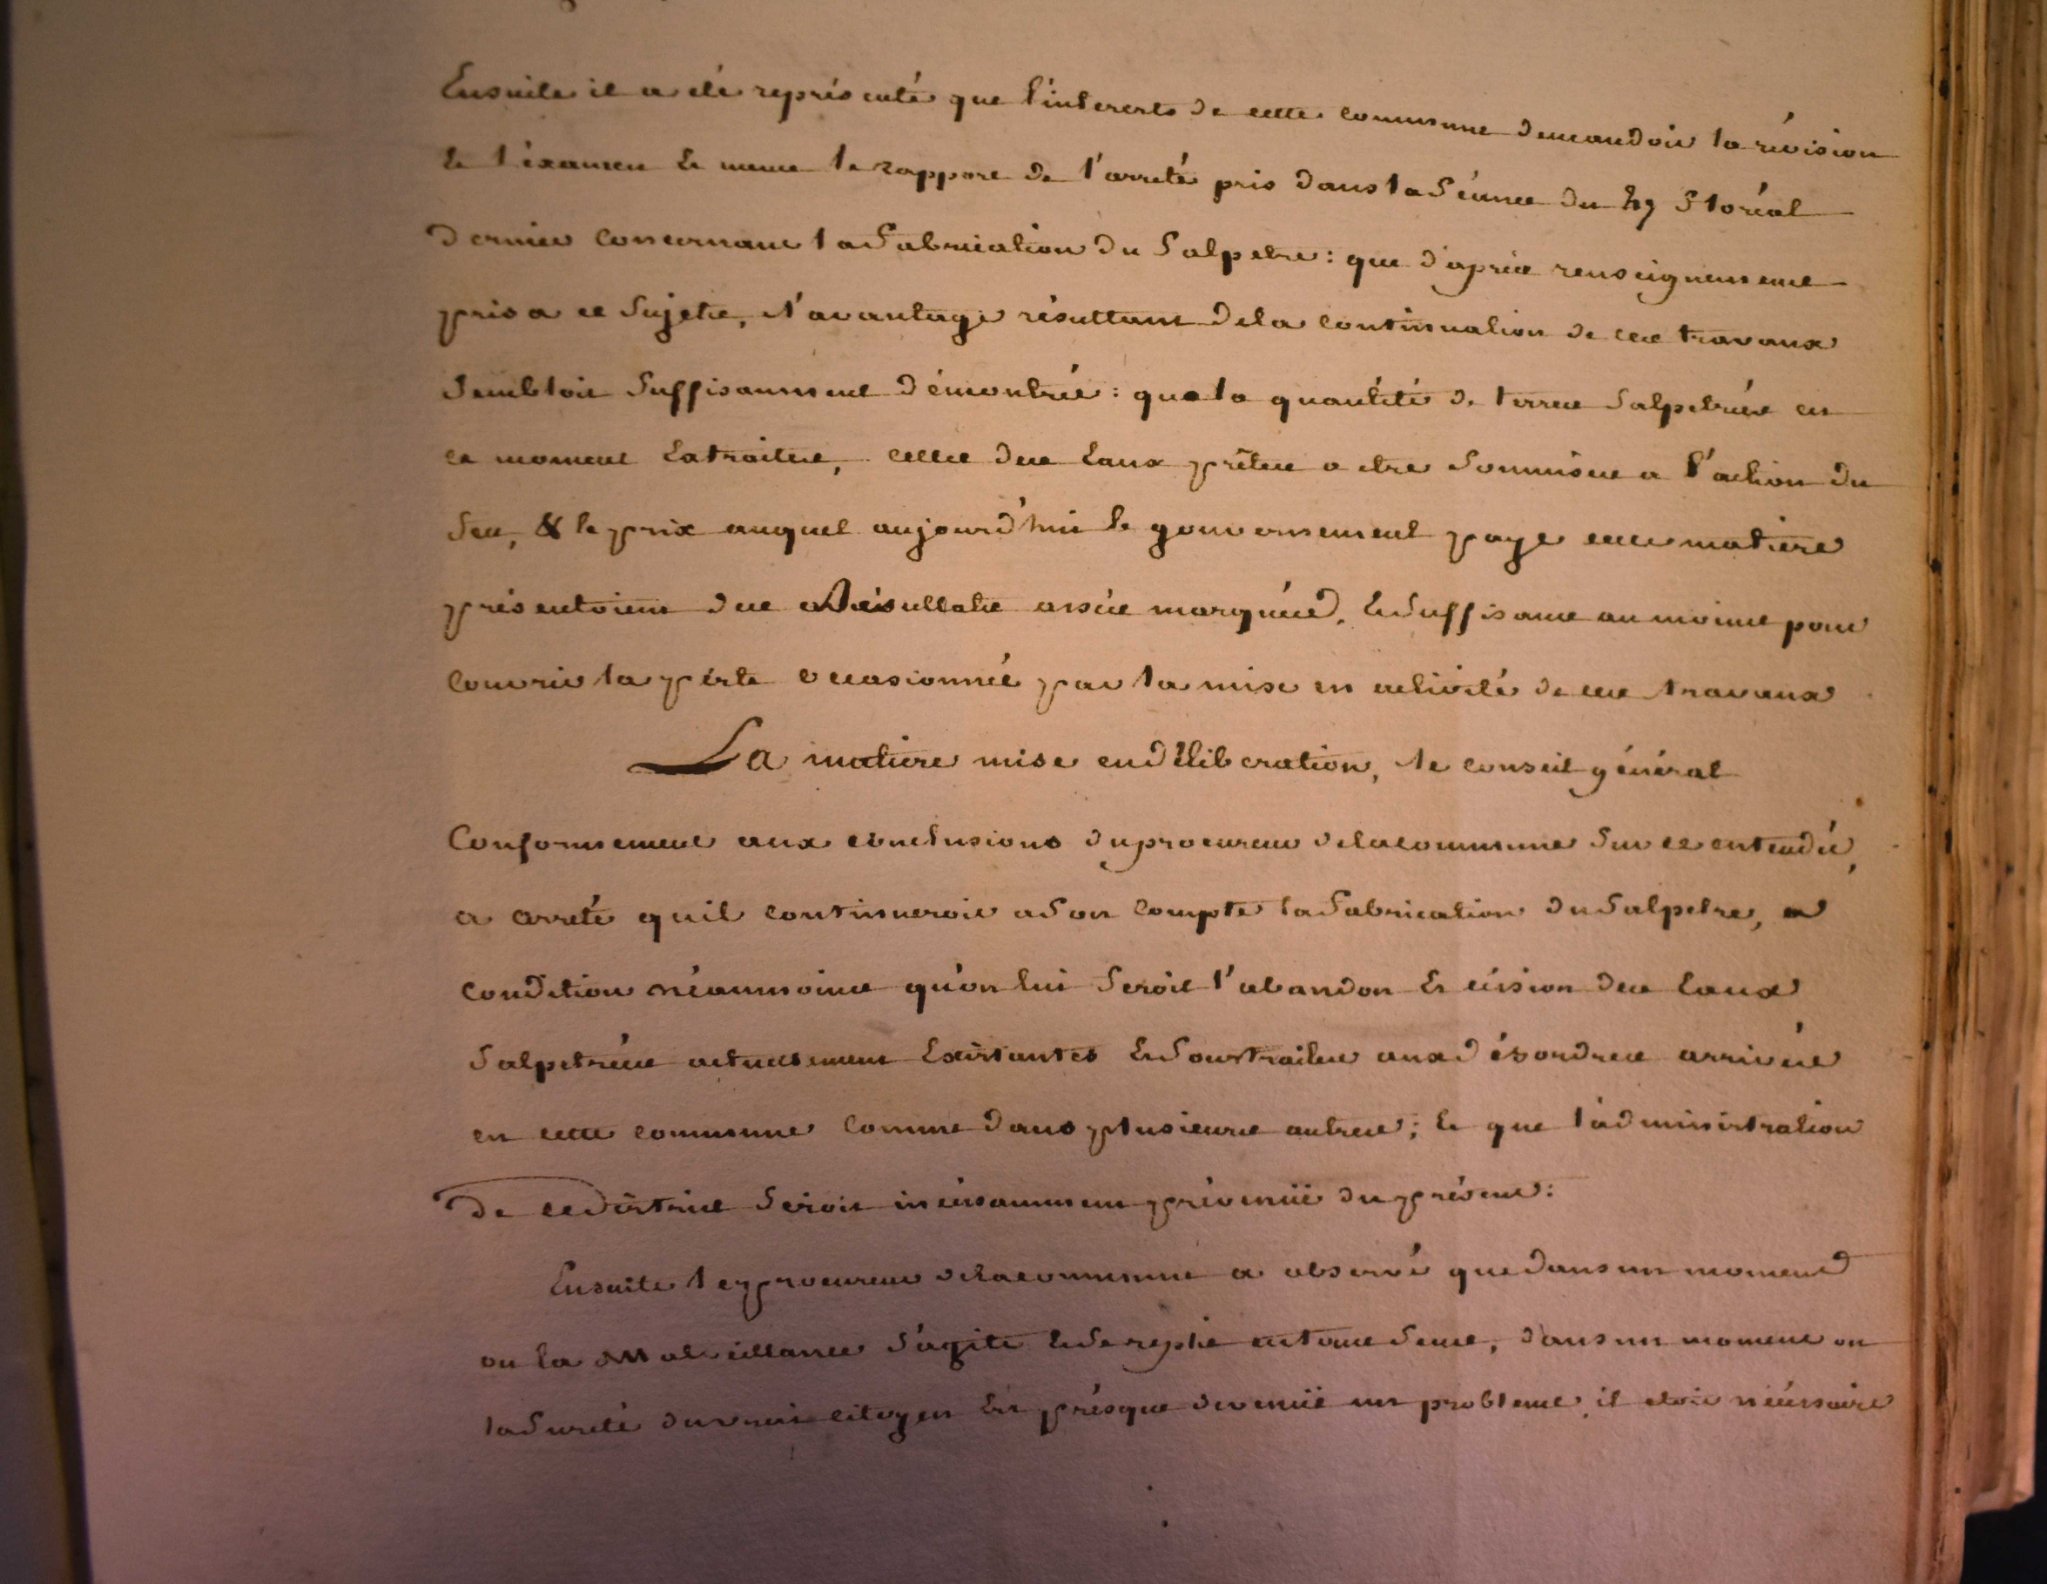 Ensuite il a été représenté que l'interests de cette commune demandoit la révision
et l'éxamen et meme le rapport de l'arreté pris dans la Séance du 29 floréal
dernier concernant la fabrication du Salpetre: que d'après renseignement
pris a ce Sujets, l'avantage résultant dela continuation de ces travaux
Sembloit Suffisamment démontrée: que la quantité de terres Salpetrées en
ce moment Extraites, celles des Eaux prêtes a etre Soumises a l'action du
feu, & le prix auquel aujourd'hui le gouvernement paye cette matiere
présentoient des Résultats assés marquées, et Suffisans au moins pour
couvrir la pérte occasionnée par la mise en activité de ces travaux
La matiere mise en déliberation, le conseil général
Conformement aux conclusions du procureur dela commune Sur ce entendu,
a arreté quil continueroit a Son compte la fabrication du Salpetre, a
condition néanmoins qu'on lui feroit l'abandon et céssion des Eaux
Salpetrées actuellement Existantes et Soustraites aux désordres arrivés
en cette commune comme dans plusieurs autres; et que l'administration
de ce District Seroit incéssamment prévenüe du présent:
Ensuite le procureur dela commune a observé que dans un moment
ou la Malveillance S'agite et Se replie en tous Sens, dans un moment ou
la Sureté du vrai citoyen Est présque devenüe un probleme, il etoit nécéssaire